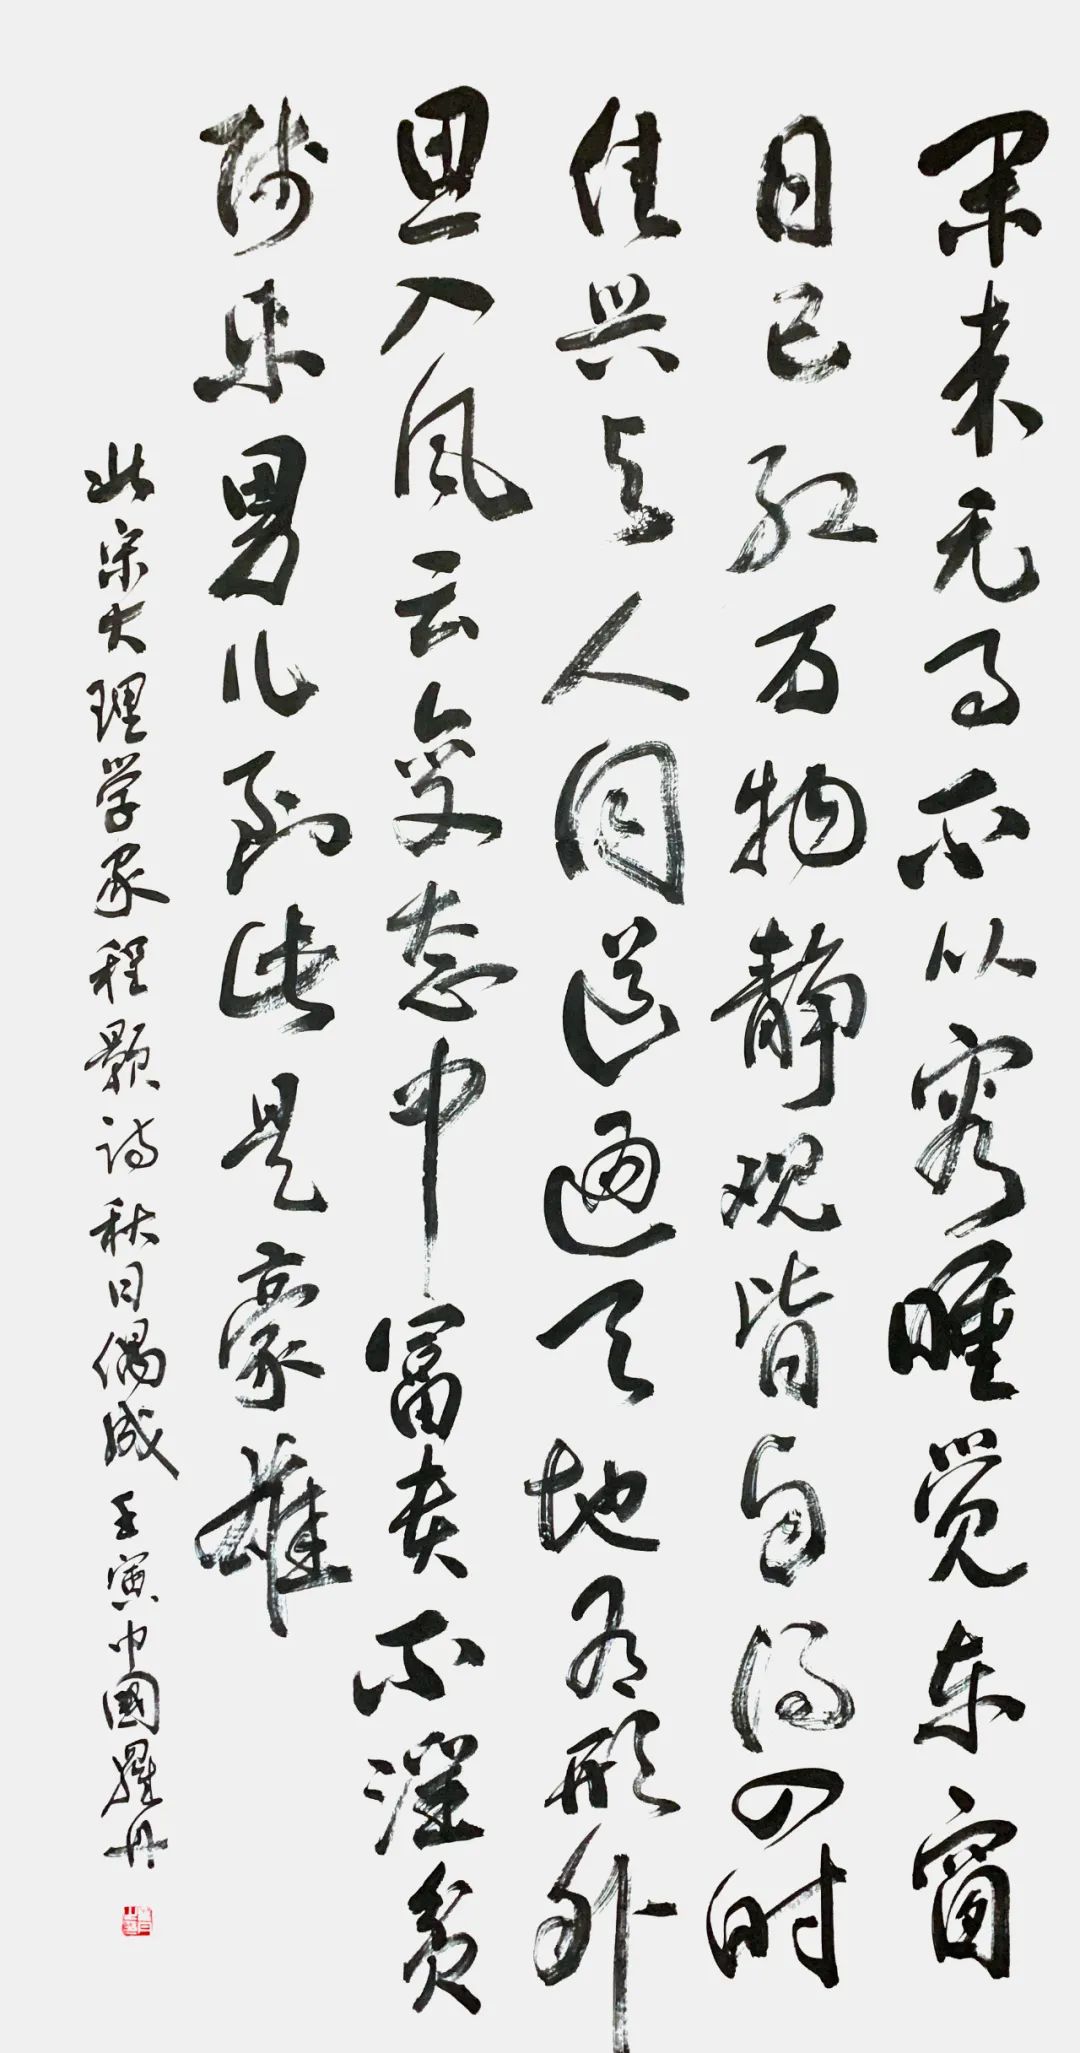 闲来无事不从容睡觉东窗
日已红万物静观皆自得四时
佳兴与人同道通天地有形外
思入风云变态中富贵不淫贫
贱乐男儿到此是豪雄
此宋大理学家程颢诗秋日偶成 壬寅中國羅丹